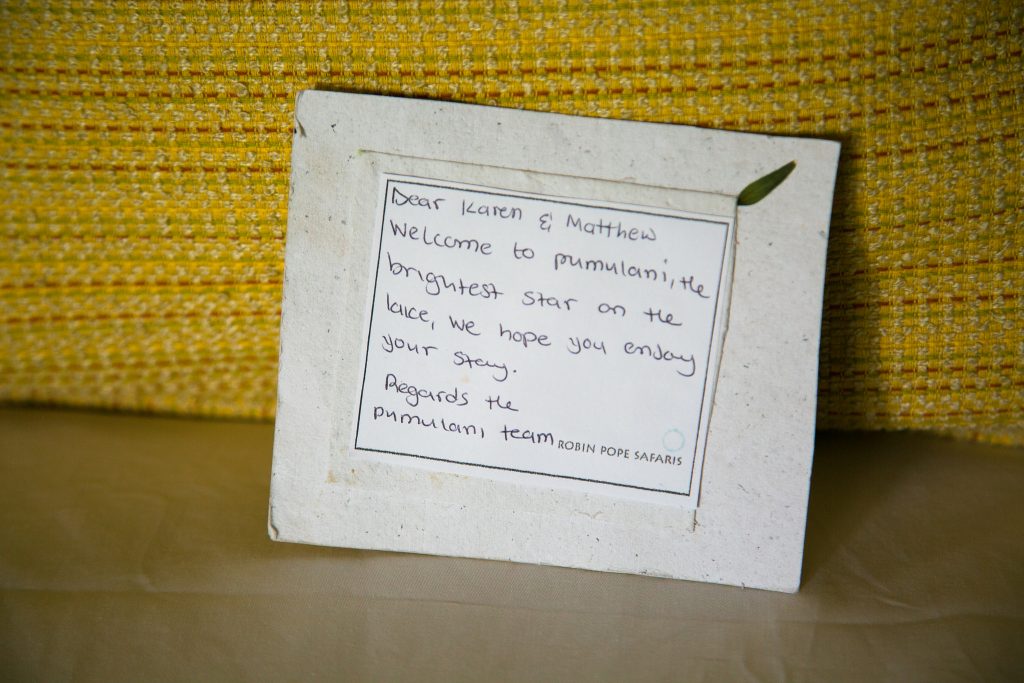 Dear Karen & Matthew
Welcome to pumulani, the
brightest star on the
lake, we hope you enjoy
your stay.
Regards the
pumulani team
ROBIN POPE SAFARIS